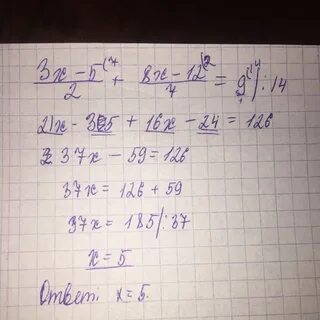 (3x - 5)/2 (7 + (8x - 12)/7 (2 = 9 (14 |: 14
21x - 35 + 16x - 24 = 126
37x - 59 = 126
37x = 126 + 59
37x = 185 |: 37
x = 5
Ответ: x = 5.